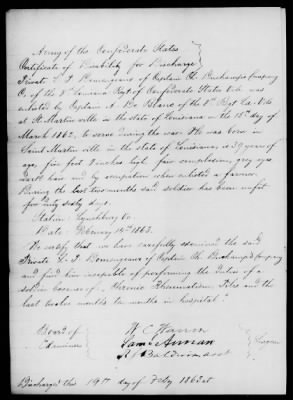 Army of the Confederate States
Certificate of Disability for Discharge
Private L. T. Domengeaux of Captain Ch. Duchamps Company
C, of the 8th Louisiana Regt of Confederate States Vols was
enlisted by Captain A. De Blanc of the 8th Regt La. Vols
at St Martinville in the State of Louisiana on the day of
March 1862, to serve during the war. He was born in
Saint Martinville in the State of Louisiana, is 39 years of
age, five feet 8 inches high, fair complexion, grey eyes
dark hair and by occupation when enlisted a farmer.
During the last two months said soldier has been unfit
for duty sixty days.
Station: Lynchburg Va
Date: February 14th 1863.
We certify that we have carefully examined the said
Private L. T. Domengeaux of Captain Ch. Duchamps Company
and find him incapable of performing the duties of a
soldier because of Chronic Rheumatism and the
last twelve months ten months in hospital."
Board of
Examiners
W. C. Warren
Saml
R. F. Baldwin
Surgeons
Discharged this 19th day of Feby 1863 at